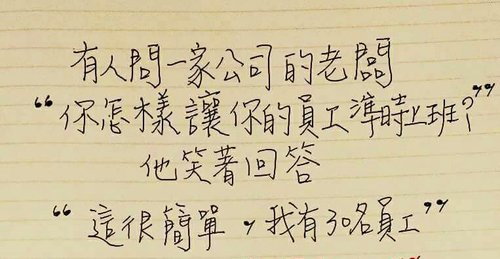 有人問一家公司的老闆
“你怎樣讓你的員工準時上班?”
他笑著回答
“這很簡單，我有30名員工”